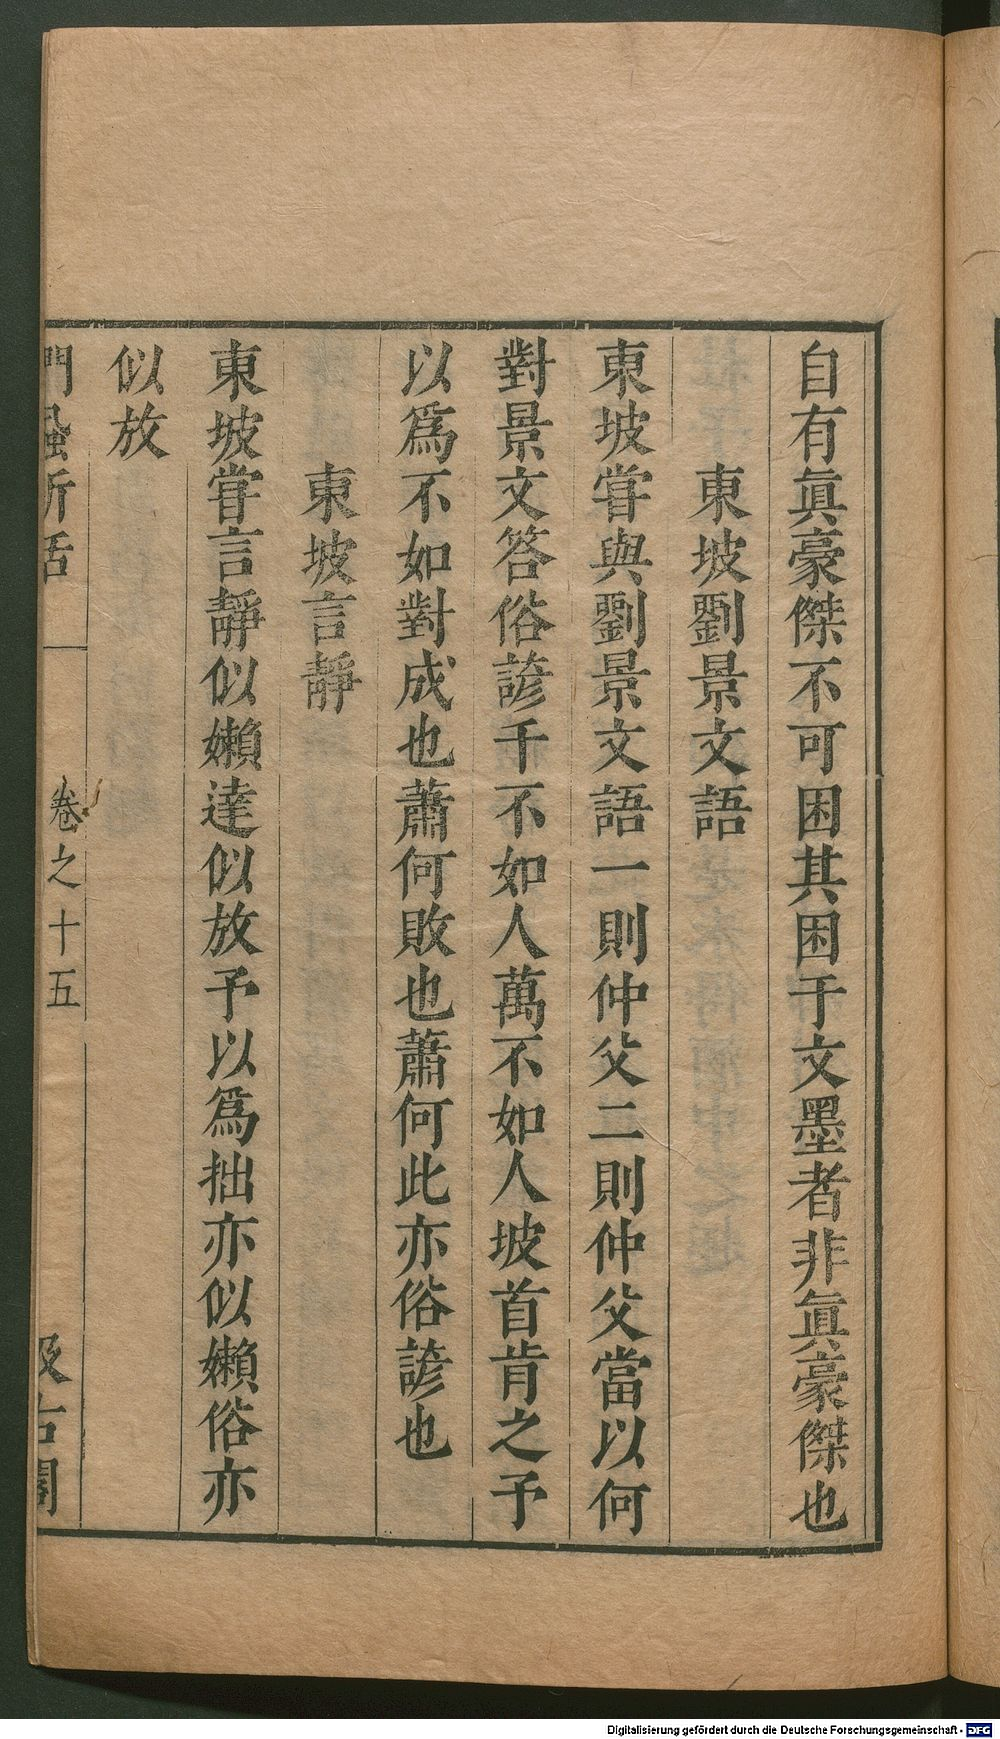 自有眞豪傑不可困其困于文墨者非眞豪傑也
東坡劉景文語
東坡甞與劉景文語一則仲父二則仲父當以何
對景文答俗諺千不如人萬不如人坡首肯之予
以爲不如對成也蕭何敗也蕭何此亦俗諺也
東坡言靜
東坡甞言靜似嬾達似放予以爲拙亦似嬾俗亦
似放
門蝨新話
卷之十五
汲古閣
Digitalisierung gefördert durch die Deutsche Forschungsgemeinschaft - DFG